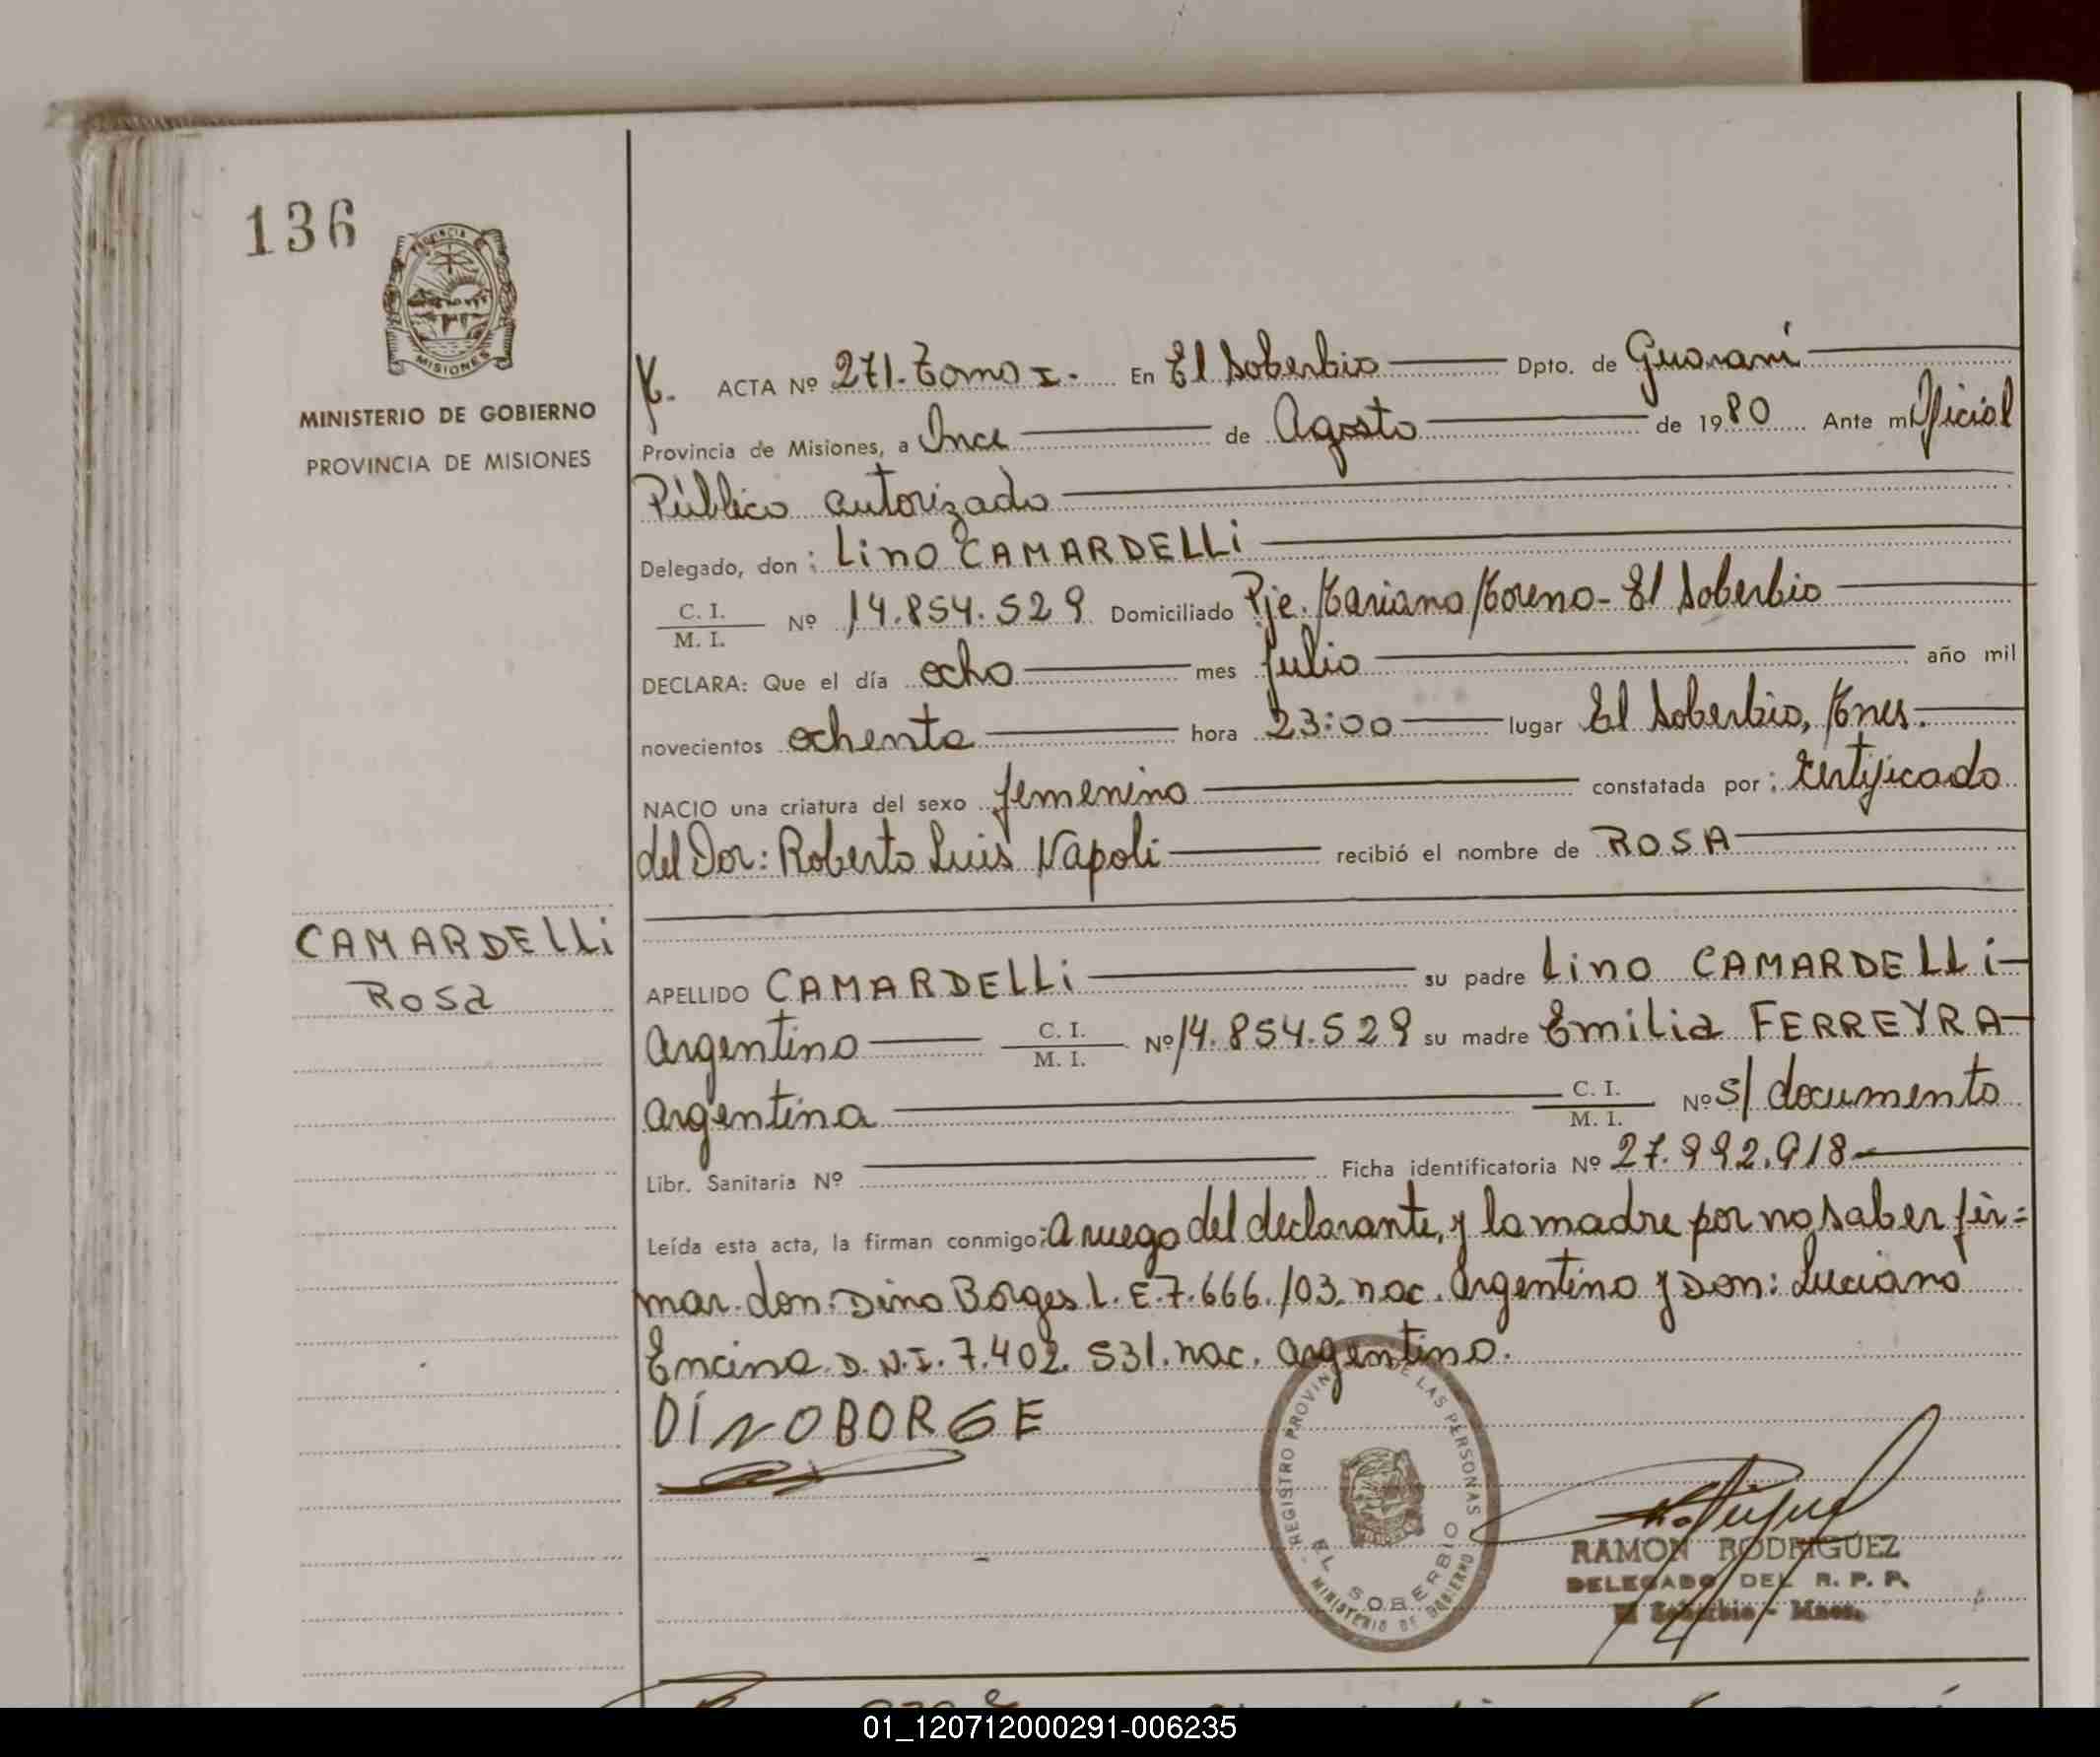 136
PROVINCIA
MISIONES
MINISTERIO DE GOBIERNO
PROVINCIA DE MISIONES
ACTA Nº 271. Tomo I. En El Soberbio Dpto. de Guaraní
Provincia de Misiones, a Once de Agosto de 1980 Ante mí Oficial
Público autorizado
Delegado, don: Lino CAMARDELLi
C. I.
M. I. Nº 14.854.529 Domiciliado Pje. Mariano Moreno - El Soberbio
DECLARA: Que el día ocho mes julio año mil
novecientos ochenta hora 23:00 lugar El Soberbio, Mnes.
NACIO una criatura del sexo femenino constatada por: Certificado
del Dor: Roberto Luis Napoli recibió el nombre de ROSA
CAMARDELLi
Rosa
APELLIDO CAMARDELLi su padre Lino CAMARDELLi
argentino C. I. M. I. Nº 14.854.529 su madre Emilia FERREYRA
argentina C. I. M. I. Nº S/ documento
Libr. Sanitaria Nº Ficha identificatoria Nº 27.992.918
Leída esta acta, la firman conmigo: A ruego del declarante, y la madre por no saber fir=
mar. don: Dino Borges L. E. 7.666.103. nac. argentino y Don: Luciano
Encina D.N.I. 7.402.531. nac. argentino.
DÍNOBORGE
REGISTRO PROVIN DE LAS PERSONAS
EL SOBERBIO
MINISTERIO DE GOBIERNO
RAMON RODRIGUEZ
DELEGADO DEL R. P. P.
El Soberbio - Mnes.
01_120712000291-006235